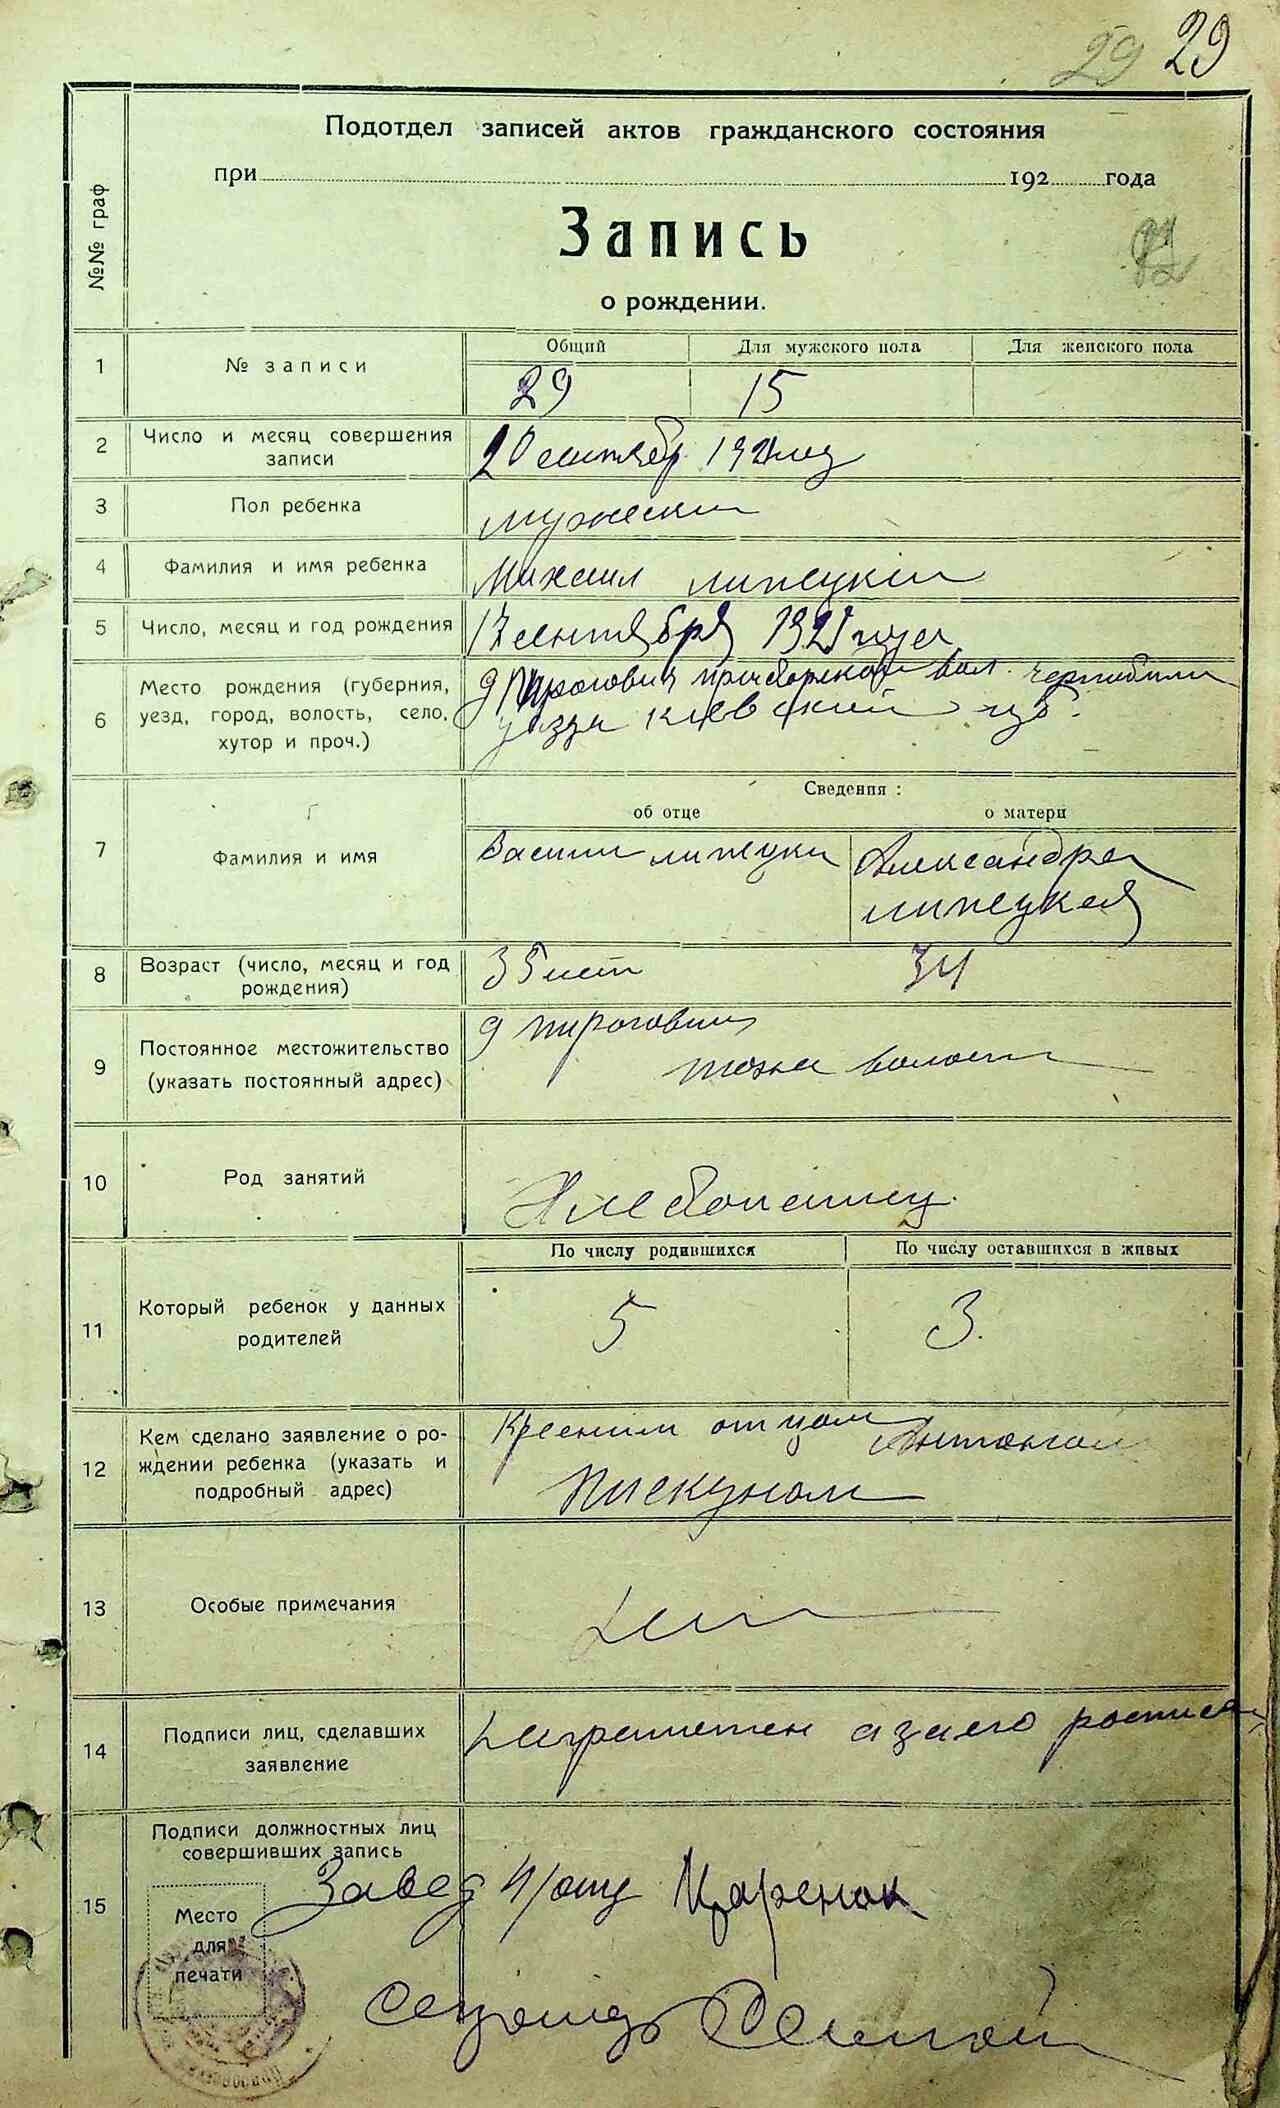 29 29
Подотдел записей актов гражданского состояния
при 192 года
Запись
о рождении.
№№ граф
Общий Для мужского пола Для женского пола
1 № записи 29 15
2 Число и месяц совершения
записи
20 сентябр 1921
3 Пол ребенка мужески
4 Фамилия и имя ребенка Михаил липецки
5 Число, месяц и год рождения 17 сентября 1921 года
6 Место рождения (губерния,
уезд, город, волость, село,
хутор и проч.)
вол. Чернобыл
уезда киевский губ.
Сведения :
об отце о матери
7 Фамилия и имя
Васили липецки Александра
липецкая
8 Возраст (число, месяц и год
рождения)
35 лет 34
9 Постоянное местожительство
(указать постоянный адрес)
тоже волости
10 Род занятий Хлебопашец.
По числу родившихся По числу оставшихся в живых
11 Который ребенок у данных
родителей
5 3.
12 Кем сделано заявление о ро-
ждении ребенка (указать и
подробный адрес)
отцом Антоном
Пискуном
13 Особые примечания
14 Подписи лиц, сделавших
заявление
неграмотен
15 Подписи должностных лиц
совершивших запись
Место
для
печати
Завед